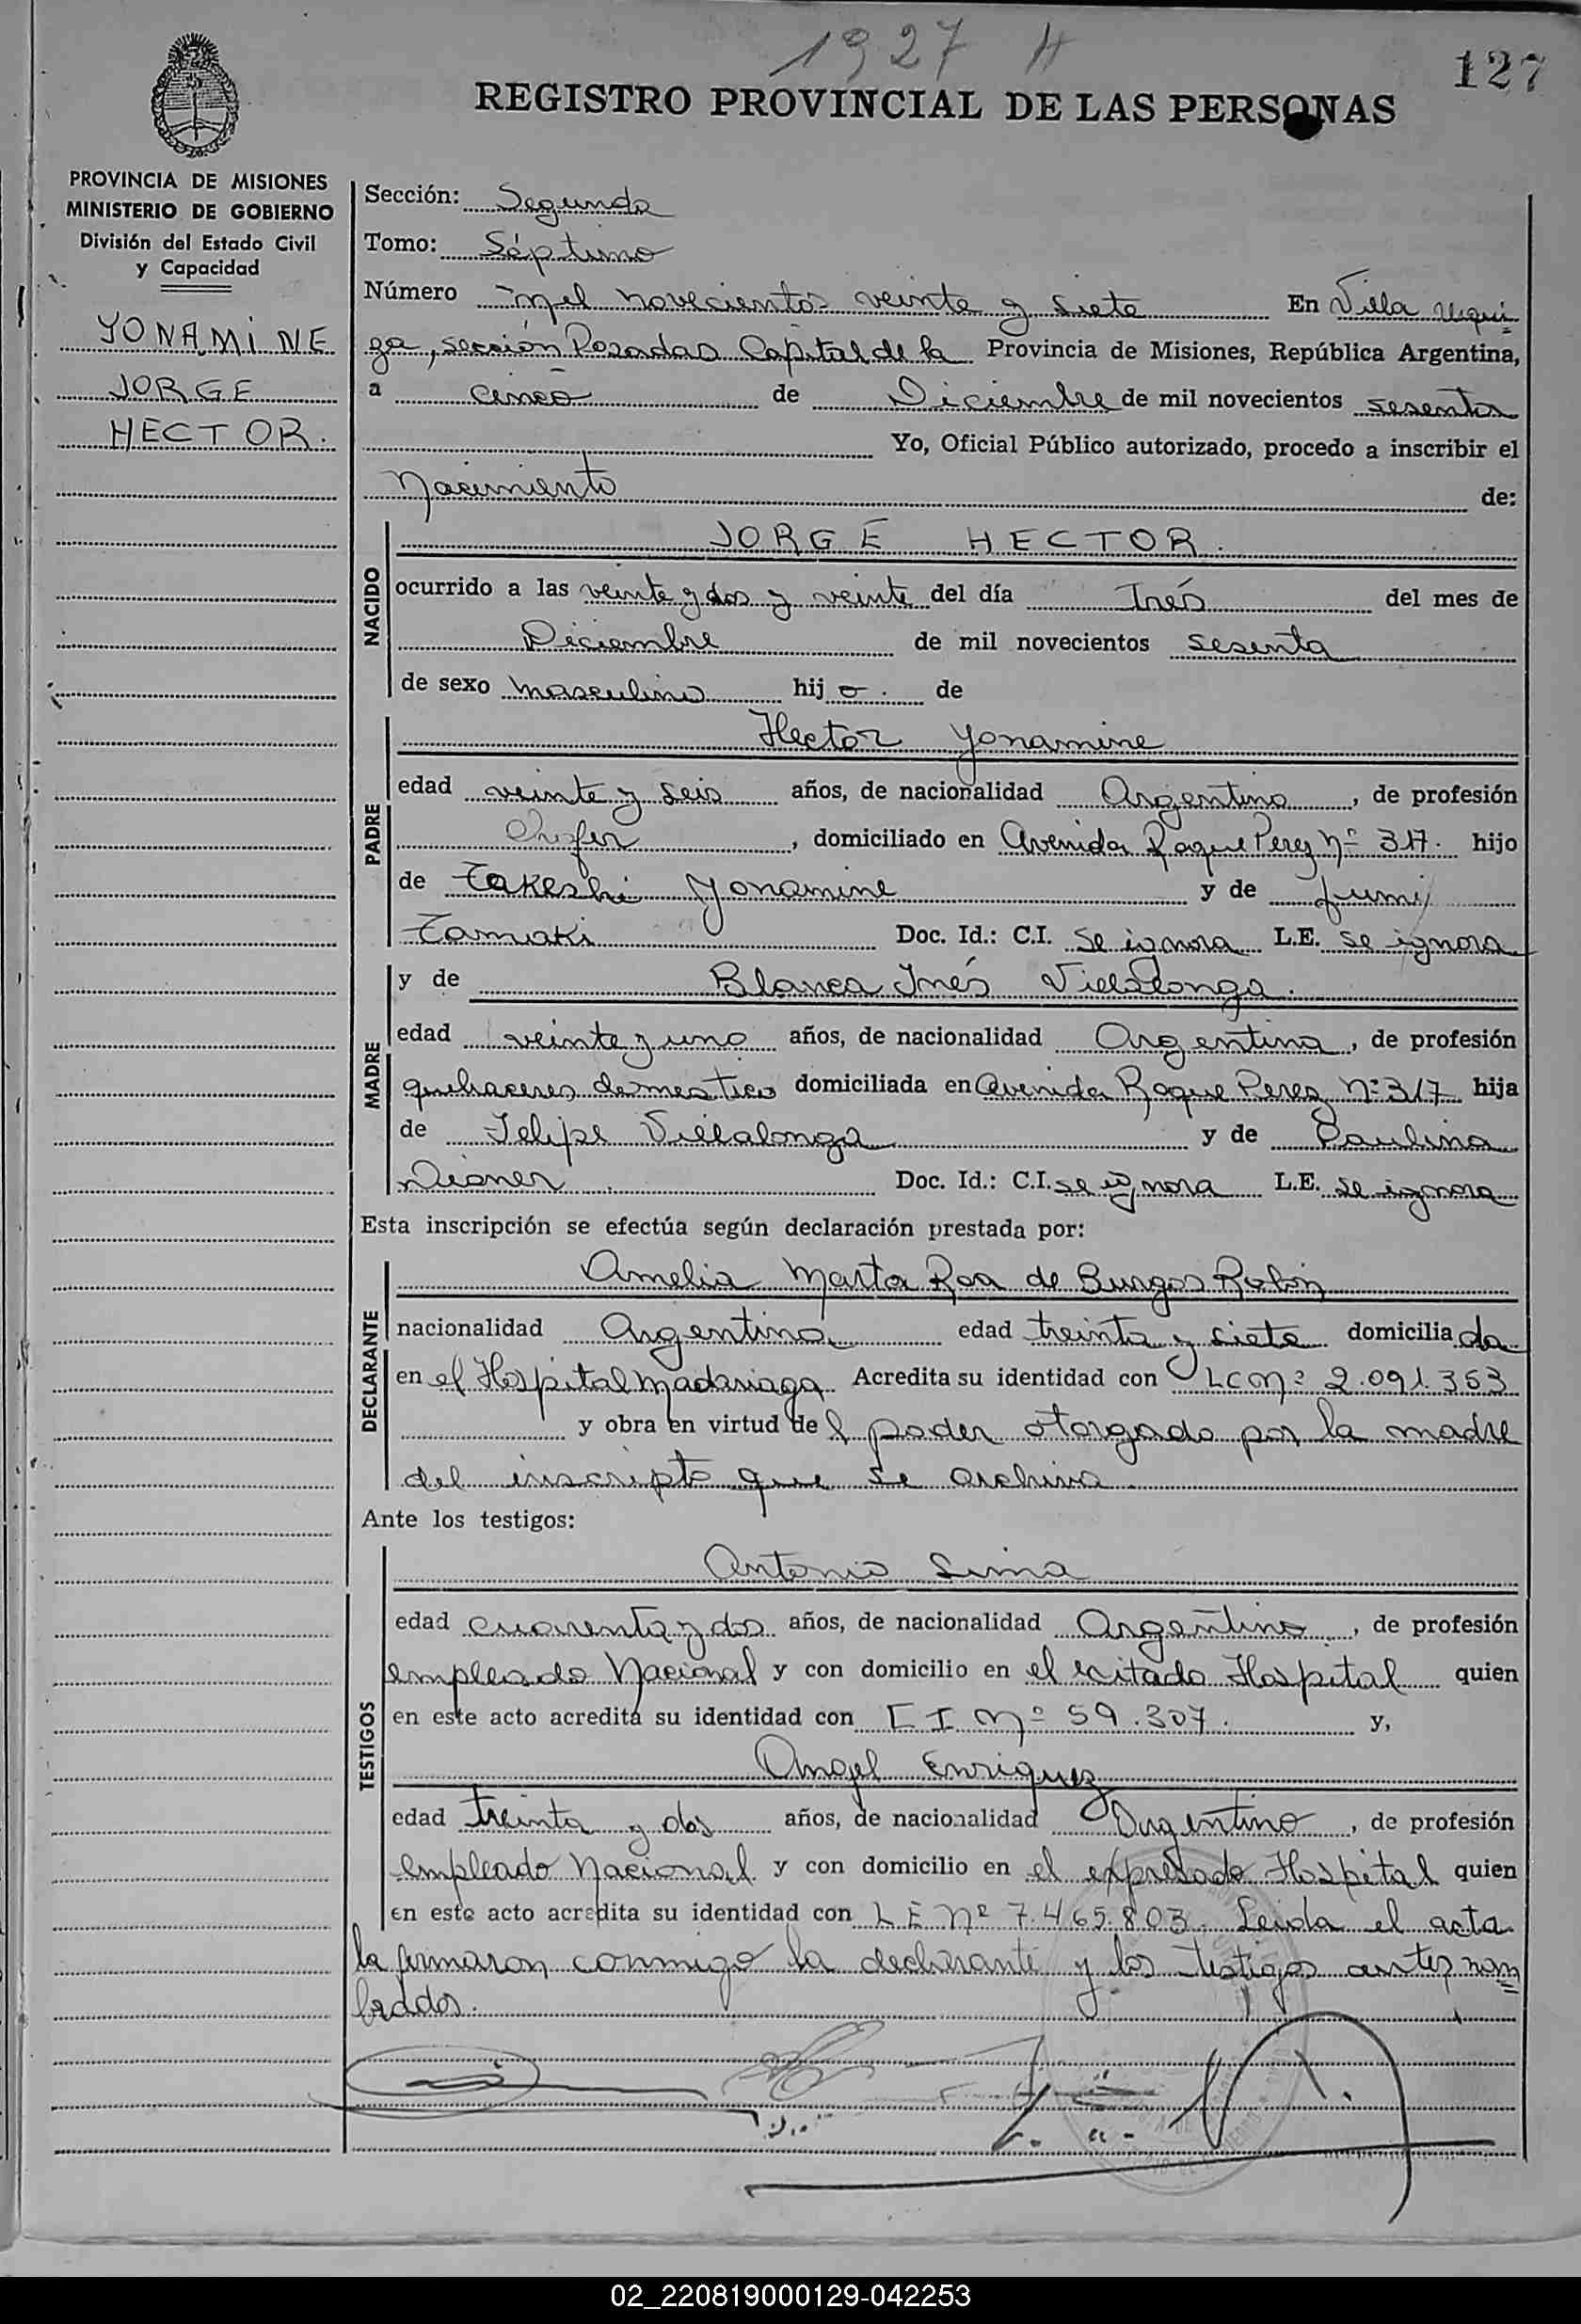 1927 H
127
REGISTRO PROVINCIAL DE LAS PERSONAS
PROVINCIA DE MISIONES
MINISTERIO DE GOBIERNO
División del Estado Civil
y Capacidad
YONAMINE
JORGE
HECTOR.
Sección: Segunda
Tomo: Séptimo
Número mil novecientos veinte y siete En Villa Urqui-
za, sección Posadas Capital de la Provincia de Misiones, República Argentina,
a cinco de Diciembre de mil novecientos sesenta
Yo, Oficial Público autorizado, procedo a inscribir el
Nacimiento de:
NACIDO
JORGE HECTOR.
ocurrido a las veinte y dos y veinte del día Trés del mes de
Diciembre de mil novecientos sesenta
de sexo masculino hijo. de
PADRE
Hector Yonamine
edad veinte y seis años, de nacionalidad Argentino, de profesión
Chofer, domiciliado en Avenida Roque Perez Nº 317. hijo
de Takeshi Yonamine y de Fumi
Tamaki Doc. Id.: C.I. se ignora L.E. se ignora
MADRE
y de Blanca Inés Villalonga.
edad veinte y uno años, de nacionalidad Argentina, de profesión
quehaceres domestico domiciliada en Avenida Roque Perez Nº 317 hija
de Felipe Villalonga y de Paulina
Doc. Id.: C.I. se ignora L.E. se ignora
Esta inscripción se efectúa según declaración prestada por:
DECLARANTE
Amelia Marta Roa de Burgos Rolón
nacionalidad Argentina edad treinta y siete domiciliada
en el Hospital Madariaga Acredita su identidad con LC Nº 2.091.353
y obra en virtud del poder otorgado por la madre
del inscripto que se archiva
Ante los testigos:
TESTIGOS
Antonio Lima
edad cuarenta y dos años, de nacionalidad Argentino, de profesión
empleado Nacional y con domicilio en el citado Hospital quien
en este acto acredita su identidad con C I Nº 59.307. y,
Angel Enriquez
edad treinta y dos años, de nacionalidad Argentino, de profesión
empleado Nacional y con domicilio en el expresado Hospital quien
en este acto acredita su identidad con L E Nº 7.465.803. Leida el acta
la firmaron conmigo la declarante y los testigos antes nom
brados.
02_220819000129-042253